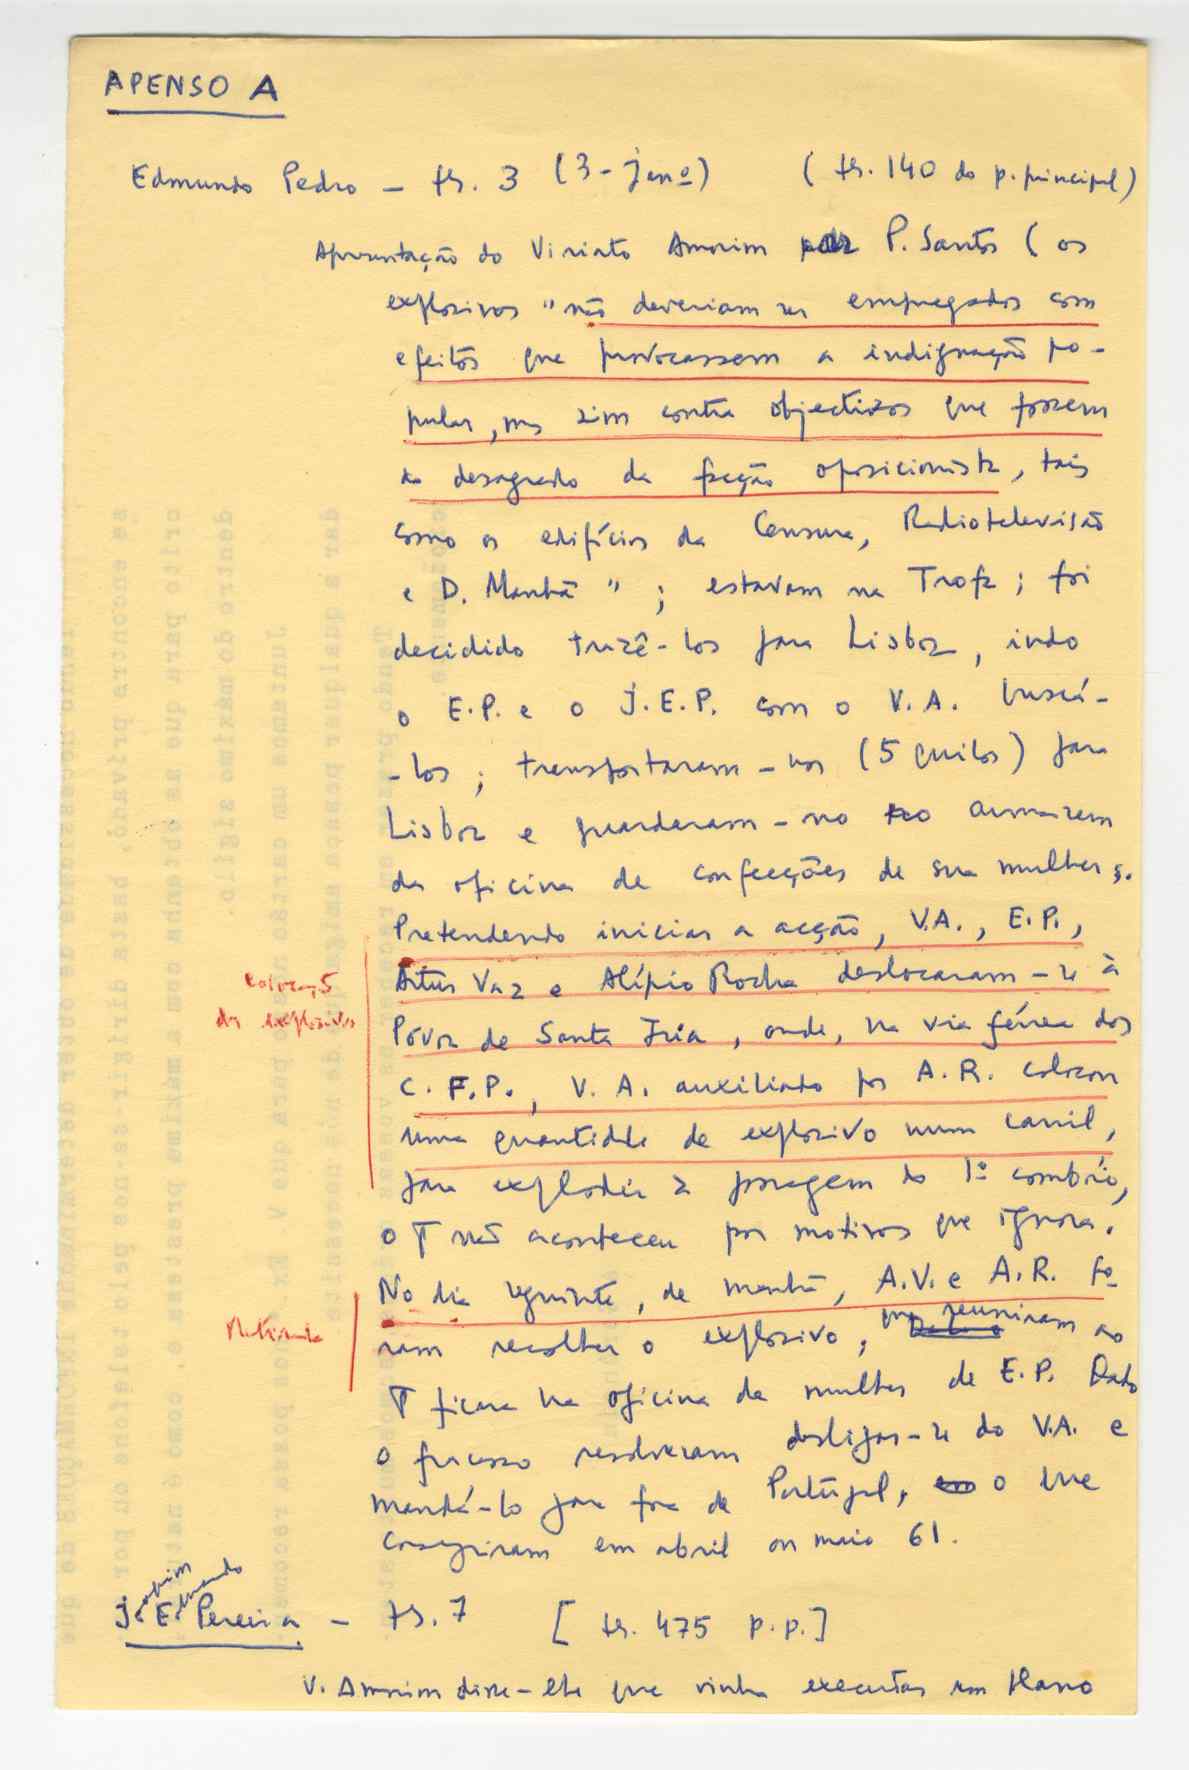 APENSO A
Edmundo Pedro - fls. 3 (3-janº) (fls. 140 do p. principal)
Apresentação do Viriato Amorim por P. Santos (os
explosivos "não deveriam ser empregados com
efeitos que provocassem a indignação po-
pular, mas sim contra objectivos que fossem
do desagrado da facção oposicionista, tais
como os edifícios da Censura, Radiotelevisão
e D. Manhã"; estavam na Trofa; foi
decidido trazê-los para Lisboa, indo
o E.P. e o J.E.P. com o V.A. buscá-
-los; transportaram-nos (5 quilos) para
Lisboa e guardaram-no no armazem
da oficina de confecções de sua mulher.
Pretendendo iniciar a acção, V.A., E.P.,
Artur Vaz e Alípio Rocha deslocaram-se à
Póvoa de Santa Iria, onde, na via férrea dos
C.F.P., V.A. auxiliado por A.R. colocou
uma quantidade de explosivo num carril,
para explodir à passagem do 1º comboio,
o q não aconteceu por motivos que ignora.
No dia seguinte, de manhã, A.V. e A.R. fo-
ram recolher o explosivo, que reuniram ao
q ficara na oficina da mulher de E.P. Dado
o fracasso resolveram desligar-se do V.A. e
mandá-lo para fora de Portugal, o que
conseguiram em abril ou maio 61.
colocação
dos explosivos
Retirada
Joaquim Eduardo
J. E. Pereira - fls. 7 [fls. 475 p.p.]
V. Amorim disse-lhe que vinha executar um plano